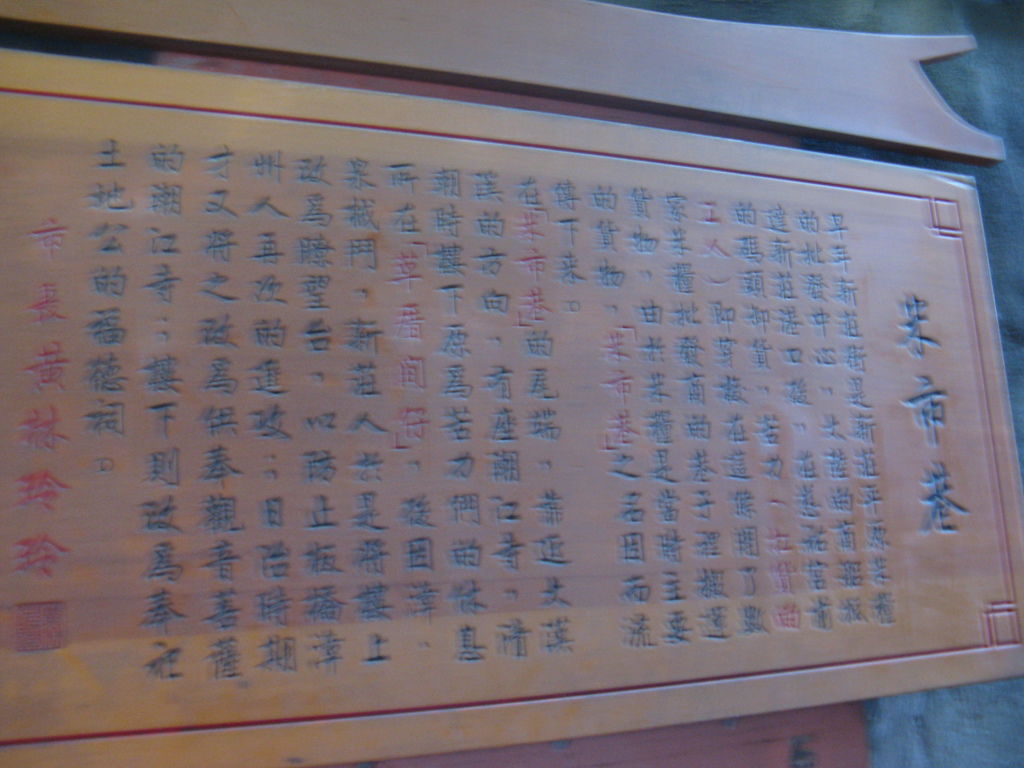 米市巷
早年新莊街是新莊平原米糧
的批發中心，大陸的商船抵
達新莊港口後，在慈祐宮前
的碼頭卸貨，苦力（扛貨
工人）即穿梭在這條開了數
家米糧批發商的巷子裡搬運
貨物，由於米糧是當時主要
的貨物，「米市巷」之名因而流
傳下來。
在「米市巷」的尾端，靠近大漢
溪的方向，有座潮江寺，清
朝時樓下原為苦力們的休息
所在「草厝間仔」，後因漳、
泉械鬥，新莊人於是將樓上
改為瞭望台，以防止板橋漳
州人再次的進攻；日治時期
才又將之改為供奉觀音菩薩
的潮江寺；樓下則改為奉祀
土地公的福德祠。
市長黃林玲玲